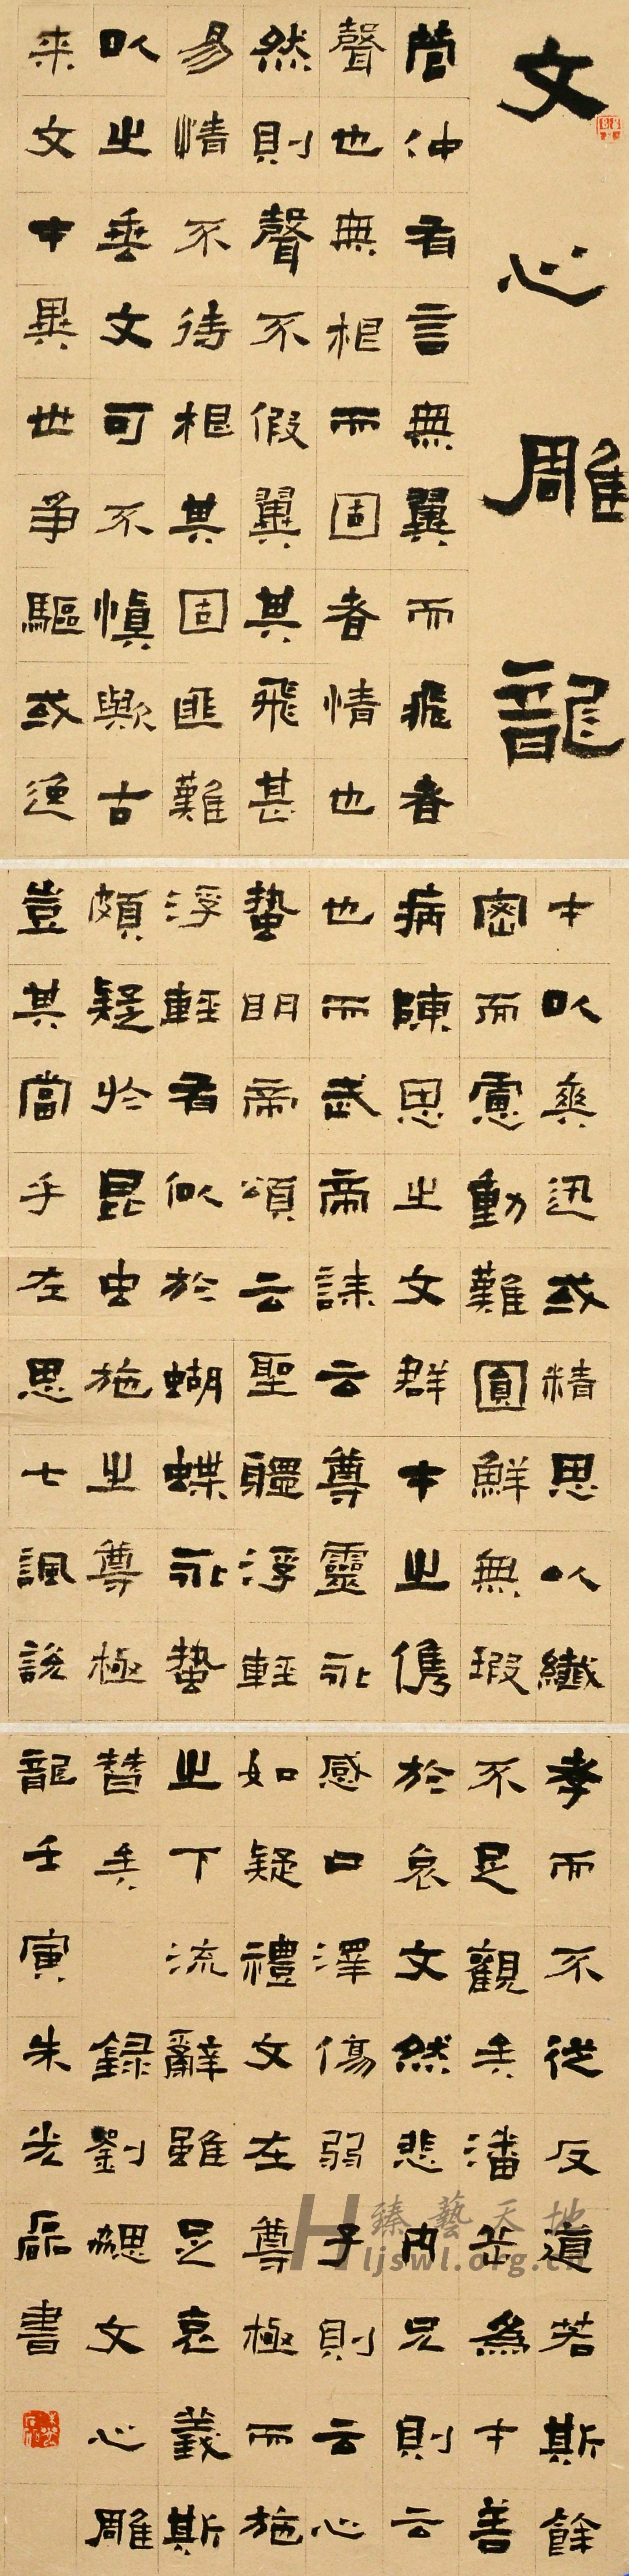 文心雕龍
管仲有言無翼而飛者
聲也無根而固者情也
然則聲不假翼其飛甚
易情不待根其固匪難
以之垂文可不慎歟古
来文才異世爭驅或逸
才以爽迅或精思以纖
密而慮動難圓鮮無瑕
病陳思之文群才之儁
也而武帝誄云尊靈永
蟄明帝頌云聖體浮輕
浮輕有似於蝴蝶永蟄
頗疑於昆虫施之尊極
豈其當乎左思七諷說
孝而不從反道若斯餘
不足觀矣潘岳為才善
於哀文然悲內兄則云
感口澤傷弱子則云心
如疑禮文在尊極而施
之下流辭雖足哀義斯
替矣 錄劉勰文心雕
龍壬寅朱光磊書
臻藝天地
Hljswl.org.cn